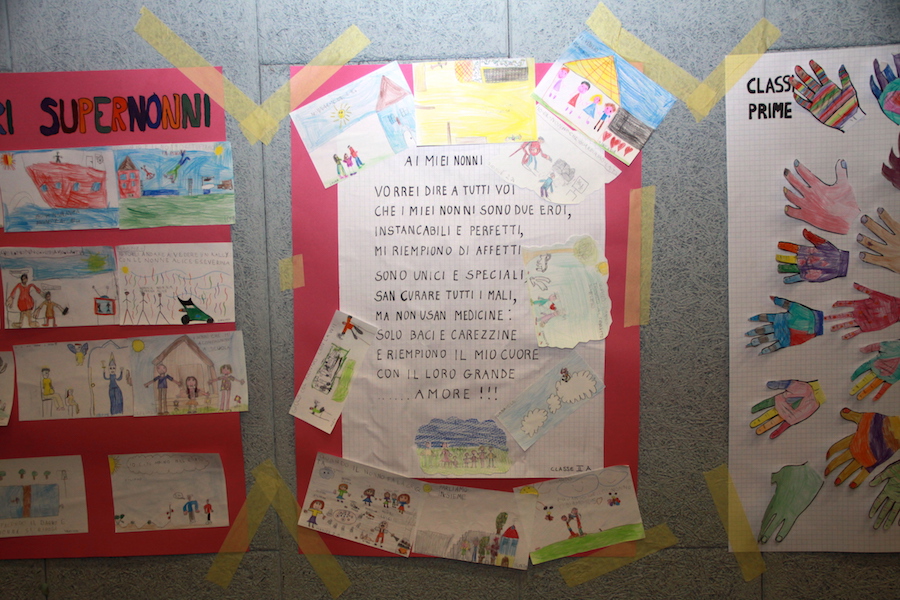 RI SUPERNONNI
AI MIEI NONNI
VORREI DIRE A TUTTI VOI
CHE I MIEI NONNI SONO DUE EROI,
INSTANCABILI E PERFETTI,
MI RIEMPIONO DI AFFETTI
SONO UNICI E SPECIALI
SAN CURARE TUTTI I MALI,
MA NON USAN MEDICINE:
SOLO BACI E CAREZZINE
E RIEMPIONO IL MIO CUORE
CON IL LORO GRANDE
......AMORE !!!
CLASSE II A
CLASSI
PRIME